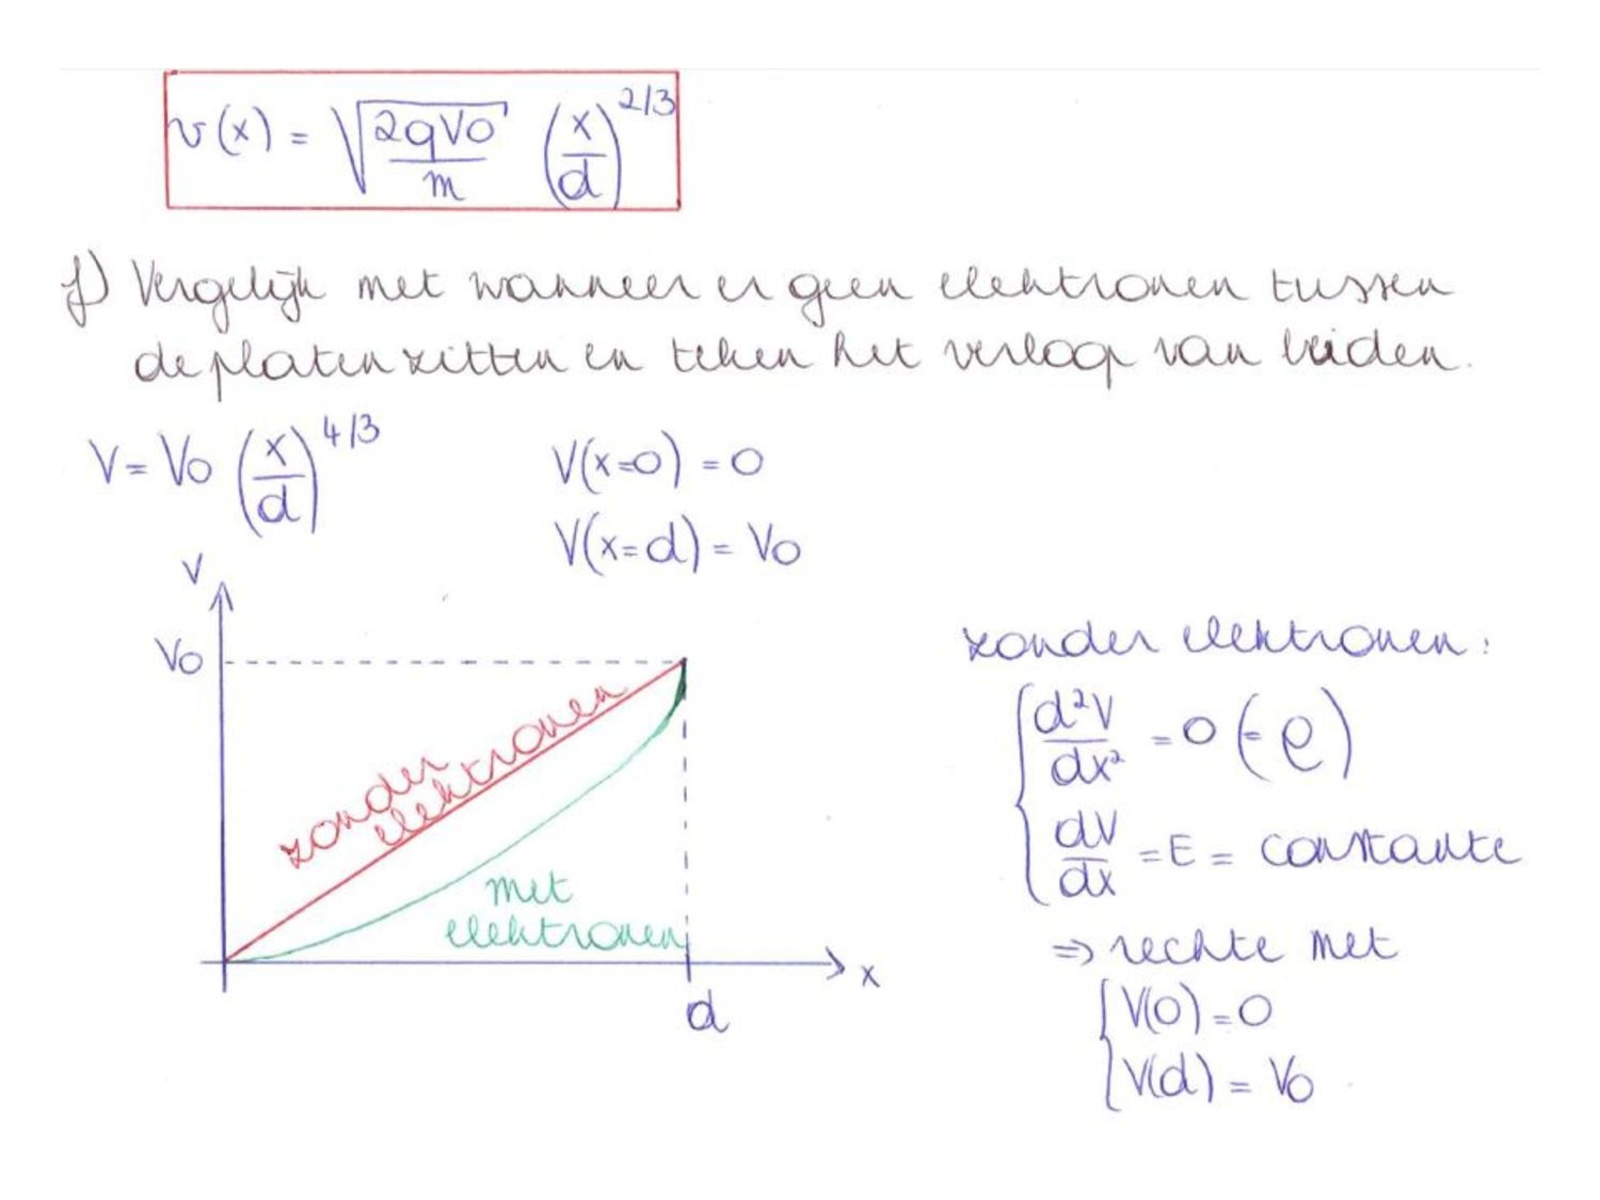 v(x) = √(2qV0/m) (x/d)^2/3
f) Vergelijk met wanneer er geen elektronen tussen
de platen zitten en teken het verloop van beiden.
V = V0 (x/d)^4/3
V(x=0) = 0
V(x=d) = V0
V
V0
zonder
elektronen
met
elektronen
x
d
zonder elektronen:
d²V/dx² = 0 (= ρ)
dV/dx = E = constante
⇒ rechte met
V(0) = 0
V(d) = V0